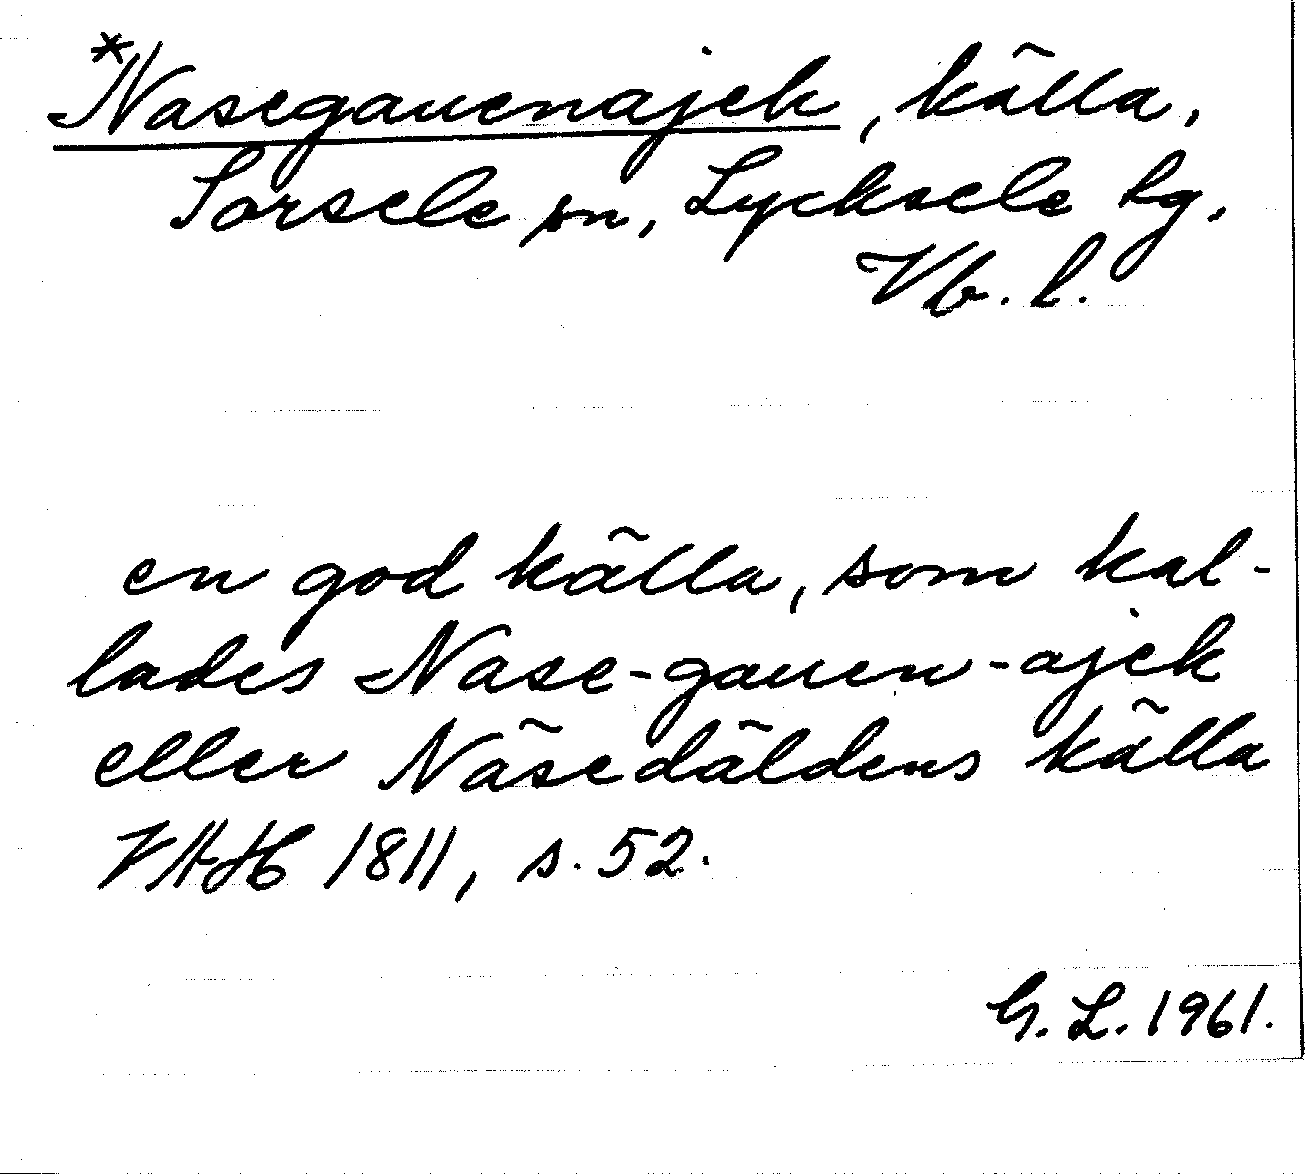 *Nasegauenajek, källa,
Sorsele sn, Lycksele lg,
Vb. l.
en god källa, som kal-
lades Nase-gauen-ajek
eller Näsedäldens källa
VAH 1811, s. 52.
G. L. 1961.